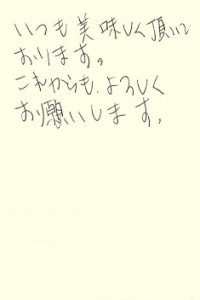 いつも美味しく頂いて
おります。
これからも、よろしく
お願いします。